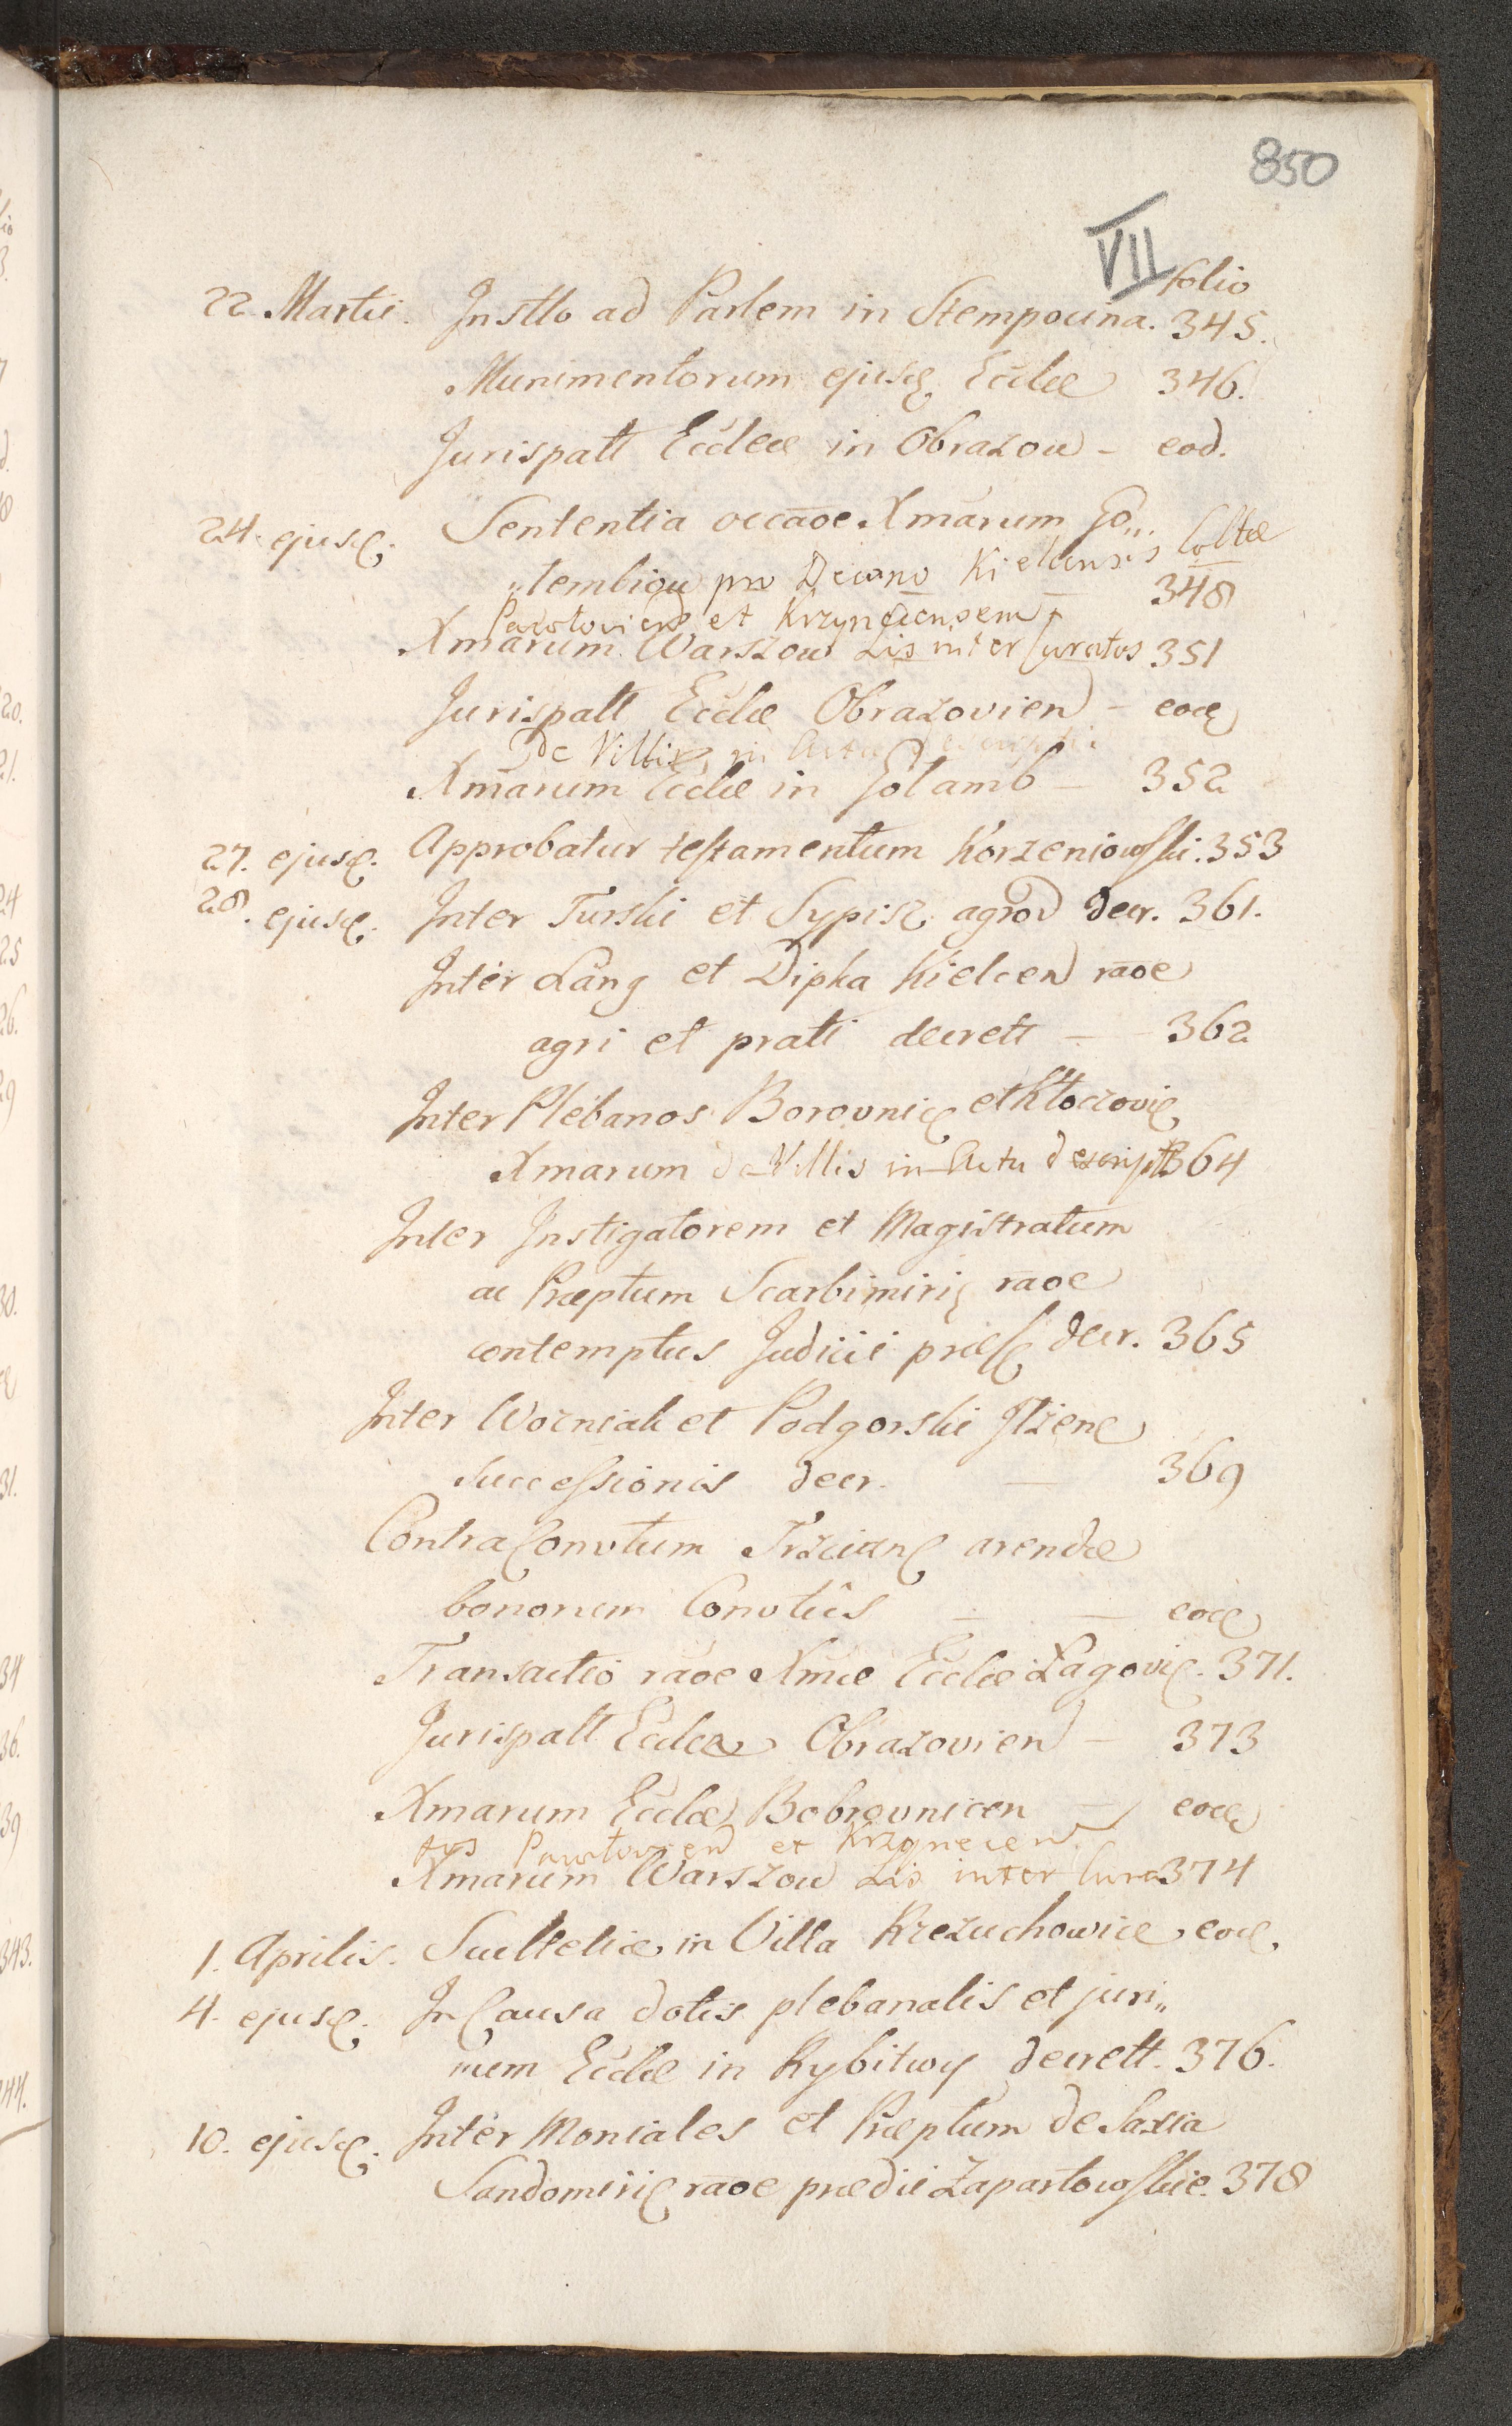 850
VII
folio
22. Martii. Instto ad Partem in Stempocina. 345.
Munimentorum ejusd. Ecclae 346.
Jurispatt Ecclae in Obrazow - eod.
24. ejusd. Sententia occaoe Xmarum Go„
„tembiow pro Decano Kielcensis Coltae 348
Pawlowien et Krzynecensem
Xmarum Warszow Lis inter Curatos 351
Jurispatt Ecclae Obrazovien - eod
De Villis in Actu
Xmarum Ecclae in Golamb - 352
27. ejusd. Approbatur testamentum Korzeniowski. 353
28. ejusd. Inter Turski et Sypisz agrod decr. 361.
Inter Lang et Dipka Kielcen raoe
agri et prati decrett - 362
Inter Plebanos Borovnic et Kłoczovic
Xmarum de Villis in Actu descript 364
Inter Instigatorem et Magistratum
ac Praeptum Scarbimiri raoe
contemptus Judicii praes decr. 365
Inter Wozniak et Podgorski Ilzenc
Successionis decr. - 369
Contra Convtum Trzcian arendae
bonorum Convtûs - - eod
Transactio raoe Xmae Ecclae Łagovic. 371.
Jurispatt Ecclae Obrazovien - 373
Xmarum Ecclae Bobrovnicen - eod
tos Pawłovien et Krzynecen
Xmarum Warszow Lis inter Cura 374
1. Aprilis. Scultetiae in Villa Krezuchowice eod.
4. ejusd. In Causa dotis plebanalis et juri„
um Ecclae in Rybitwy decrett. 376.
10. ejusd. Inter Moniales et Praeptum de Saxia
Sandomiri raoe praedii Zapartowskie. 378